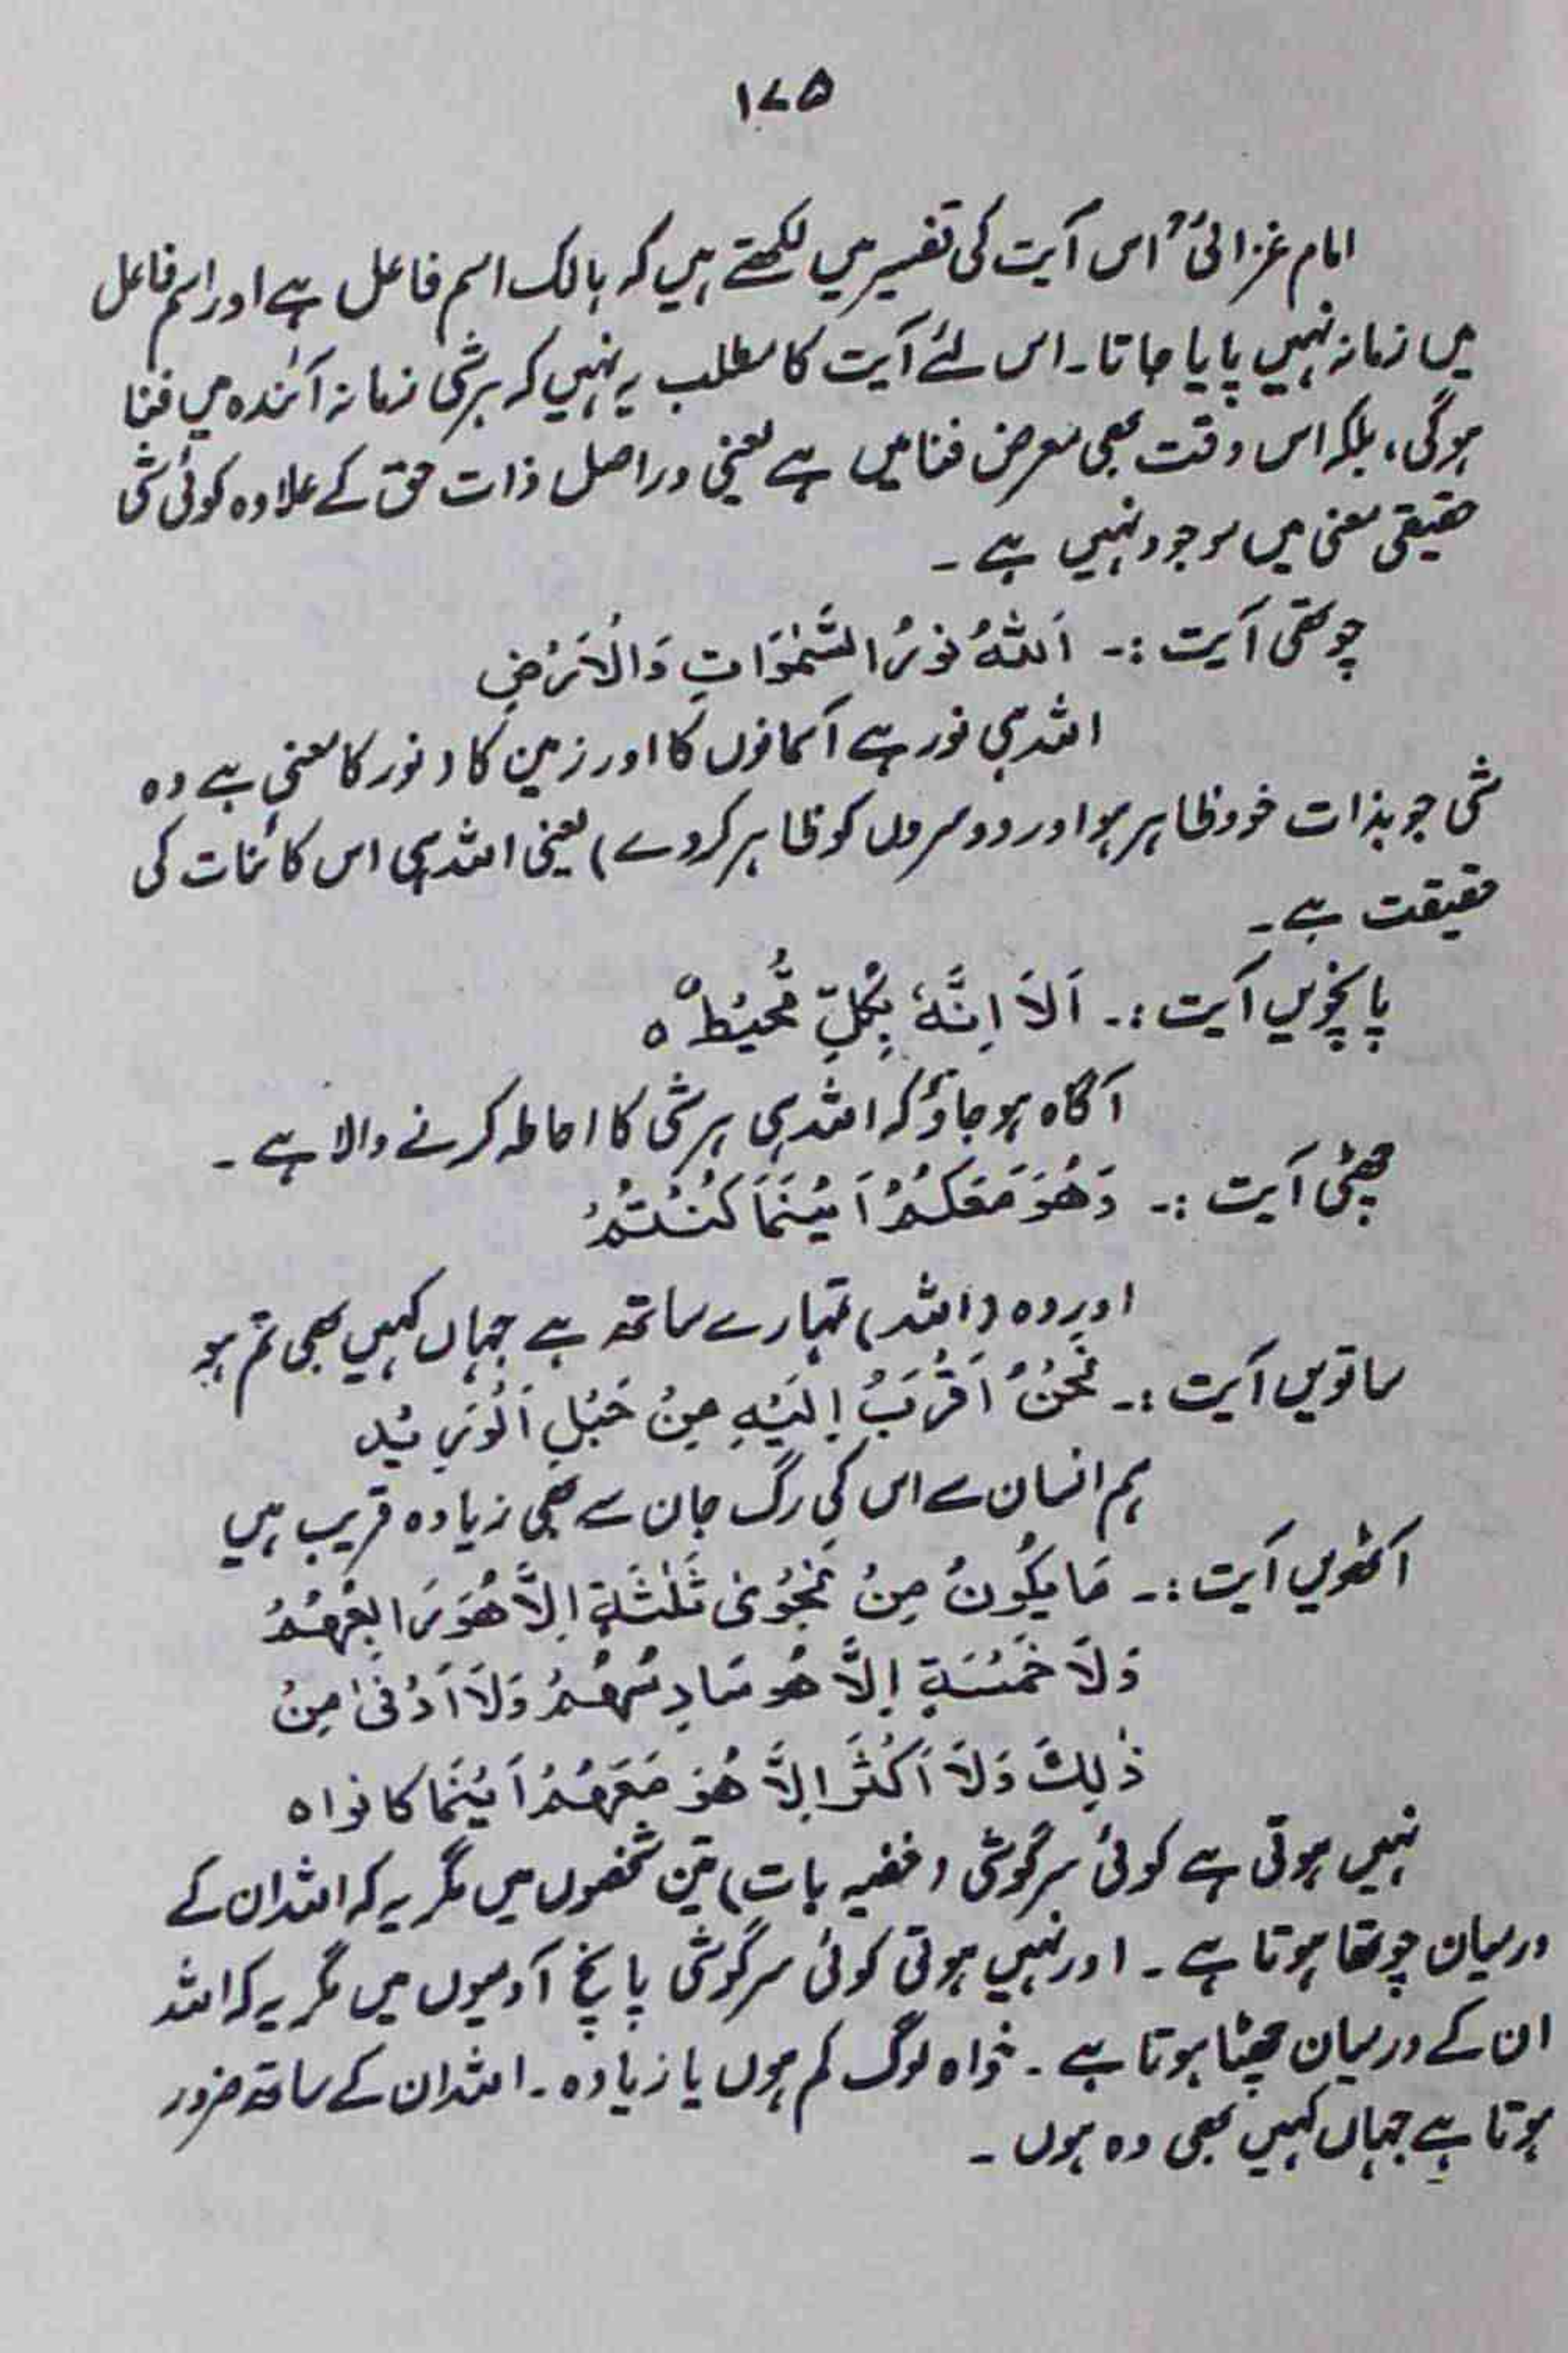 ۱۷۵
امام غزالیؒ اس آیت کی تفسیر میں لکھتے ہیں کہ ہالک اسم فاعل ہے اور اسم فاعل
میں زمانہ نہیں پایا جاتا۔ اس لئے آیت کا مطلب یہ نہیں کہ ہر شئی زمانہ آئندہ میں فنا
ہوگی، بلکہ اس وقت بھی معرض فنا میں ہے یعنی دراصل ذات حق کے علاوہ کوئی شئی
حقیقی معنی میں موجود نہیں ہے ۔
چوتھی آیت :۔ اَللّٰهُ نُوْرُ السَّمٰوَاتِ وَالْاَرْضِ
اللہ ہی نور ہے آسمانوں کا اور زمین کا (نور کا معنی ہے وہ
شئی جو بذات خود ظاہر ہو اور دوسروں کو ظاہر کردے) یعنی اللہ ہی اس کائنات کی
حقیقت ہے۔
پانچویں آیت :۔ اَلَا اِنَّهٗ بِكُلِّ مُّحِيْطٌ ہ
آگاہ ہو جاؤ کہ اللہ ہی ہر شئی کا احاطہ کرنے والا ہے ۔
چھٹی آیت :۔ وَهُوَ مَعَكُمْ اَيْنَمَا كُنْتُمْ
اور وہ (اللہ) تمہارے ساتھ ہے جہاں کہیں بھی تم ہو
ساتویں آیت :۔ نَحْنُ اَقْرَبُ اِلَيْهِ مِنْ حَبْلِ اَلْوَرِيْدِ
ہم انسان سے اس کی رگ جان سے بھی زیادہ قریب ہیں
آٹھویں آیت :۔ مَا يَكُونُ مِنْ نَّجْوٰى ثَلٰثَةٍ اِلَّا هُوَ رَابِعُهُمْ
وَلَا خَمْسَةٍ اِلَّا هُوَ سَادِسُهُمْ وَلَا اَدْنٰى مِنْ
ذٰلِكَ وَلَا اَكْثَرَ اِلَّا هُوَ مَعَهُمْ اَيْنَمَا كَانُوا ہ
نہیں ہوتی ہے کوئی سرگوشی (خفیہ بات) تین شخصوں میں مگر یہ کہ اللہ ان کے
درمیان چوتھا ہوتا ہے ۔ اور نہیں ہوتی کوئی سرگوشی پانچ آدمیوں میں مگر یہ کہ اللہ
ان کے درمیان چھٹا ہوتا ہے ۔ خواہ لوگ کم ہوں یا زیادہ ۔ اللہ ان کے ساتھ ضرور
ہوتا ہے جہاں کہیں بھی وہ ہوں ۔